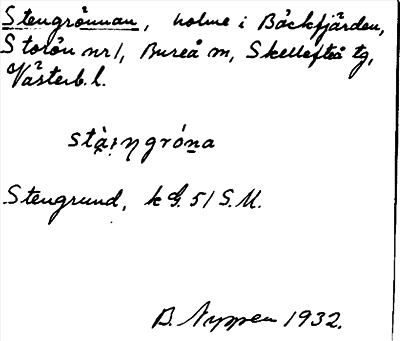 Stengrönnan, holme i Bäckfjärden,
Storön nr 1, Bureå sn, Skellefteå tg,
Västerb. l.
stà̤i̥ŋgró́na
Stengrund, k G. 51 S.U.
B. Nyppen 1932.